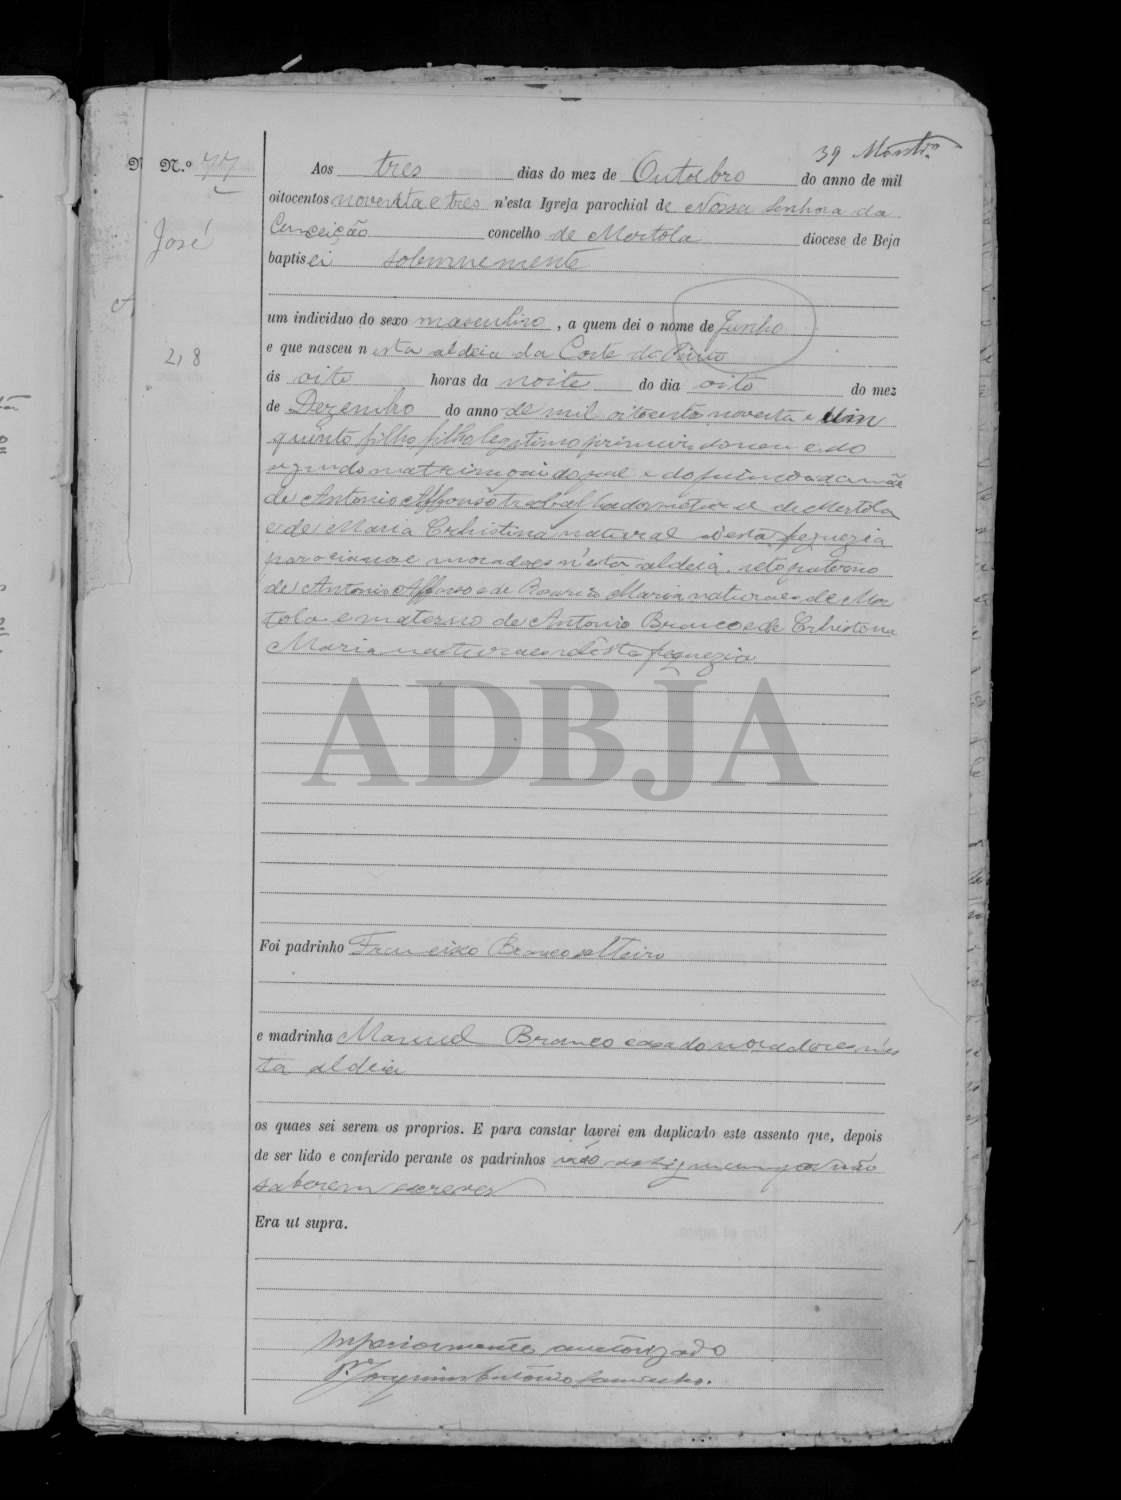 39
N.º 77
Aos tres dias do mez de Outubro do anno de mil
oitocentos noventa e tres n'esta Igreja parochial de Nossa Senhora da
Conceição concelho de Mertola diocese de Beja
baptisei solemnemente
José
um individuo do sexo masculino, a quem dei o nome de Junho
e que nasceu nesta aldeia da Corte do Pinto
2,8
ás oito horas da noite do dia oito do mez
de Dezembro do anno de mil oitocentos noventa e um
quinto filho filho legitimo primeiro do nome e do
segundo matrimonio do pae e do primeiro da mãe
de Antonio Affonso trabalhador natural de Mertola
e de Maria Christina natural desta freguezia
parocianos e moradores n'esta aldeia. neto paterno
de Antonio Affonso e de Maria naturaes de Mer
tola e materno de Antonio Branco e de Christina
Maria naturaes desta freguezia
ADBJA
Foi padrinho Francisco Branco solteiro
e madrinha Manuel Branco casado moradores n'es
ta aldeia
os quaes sei serem os proprios. E para constar lavrei em duplicado este assento que, depois
de ser lido e conferido perante os padrinhos não assignaram por não
saberem escrever
Era ut supra.
Superiormente auctorizado
P.e Joaquim Antonio